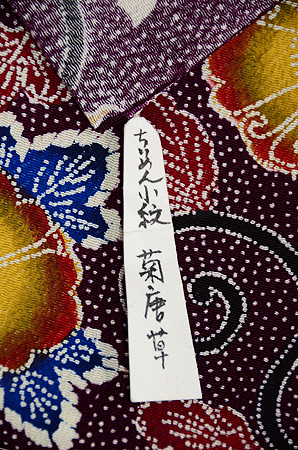 ちりめん小紋 菊唐草